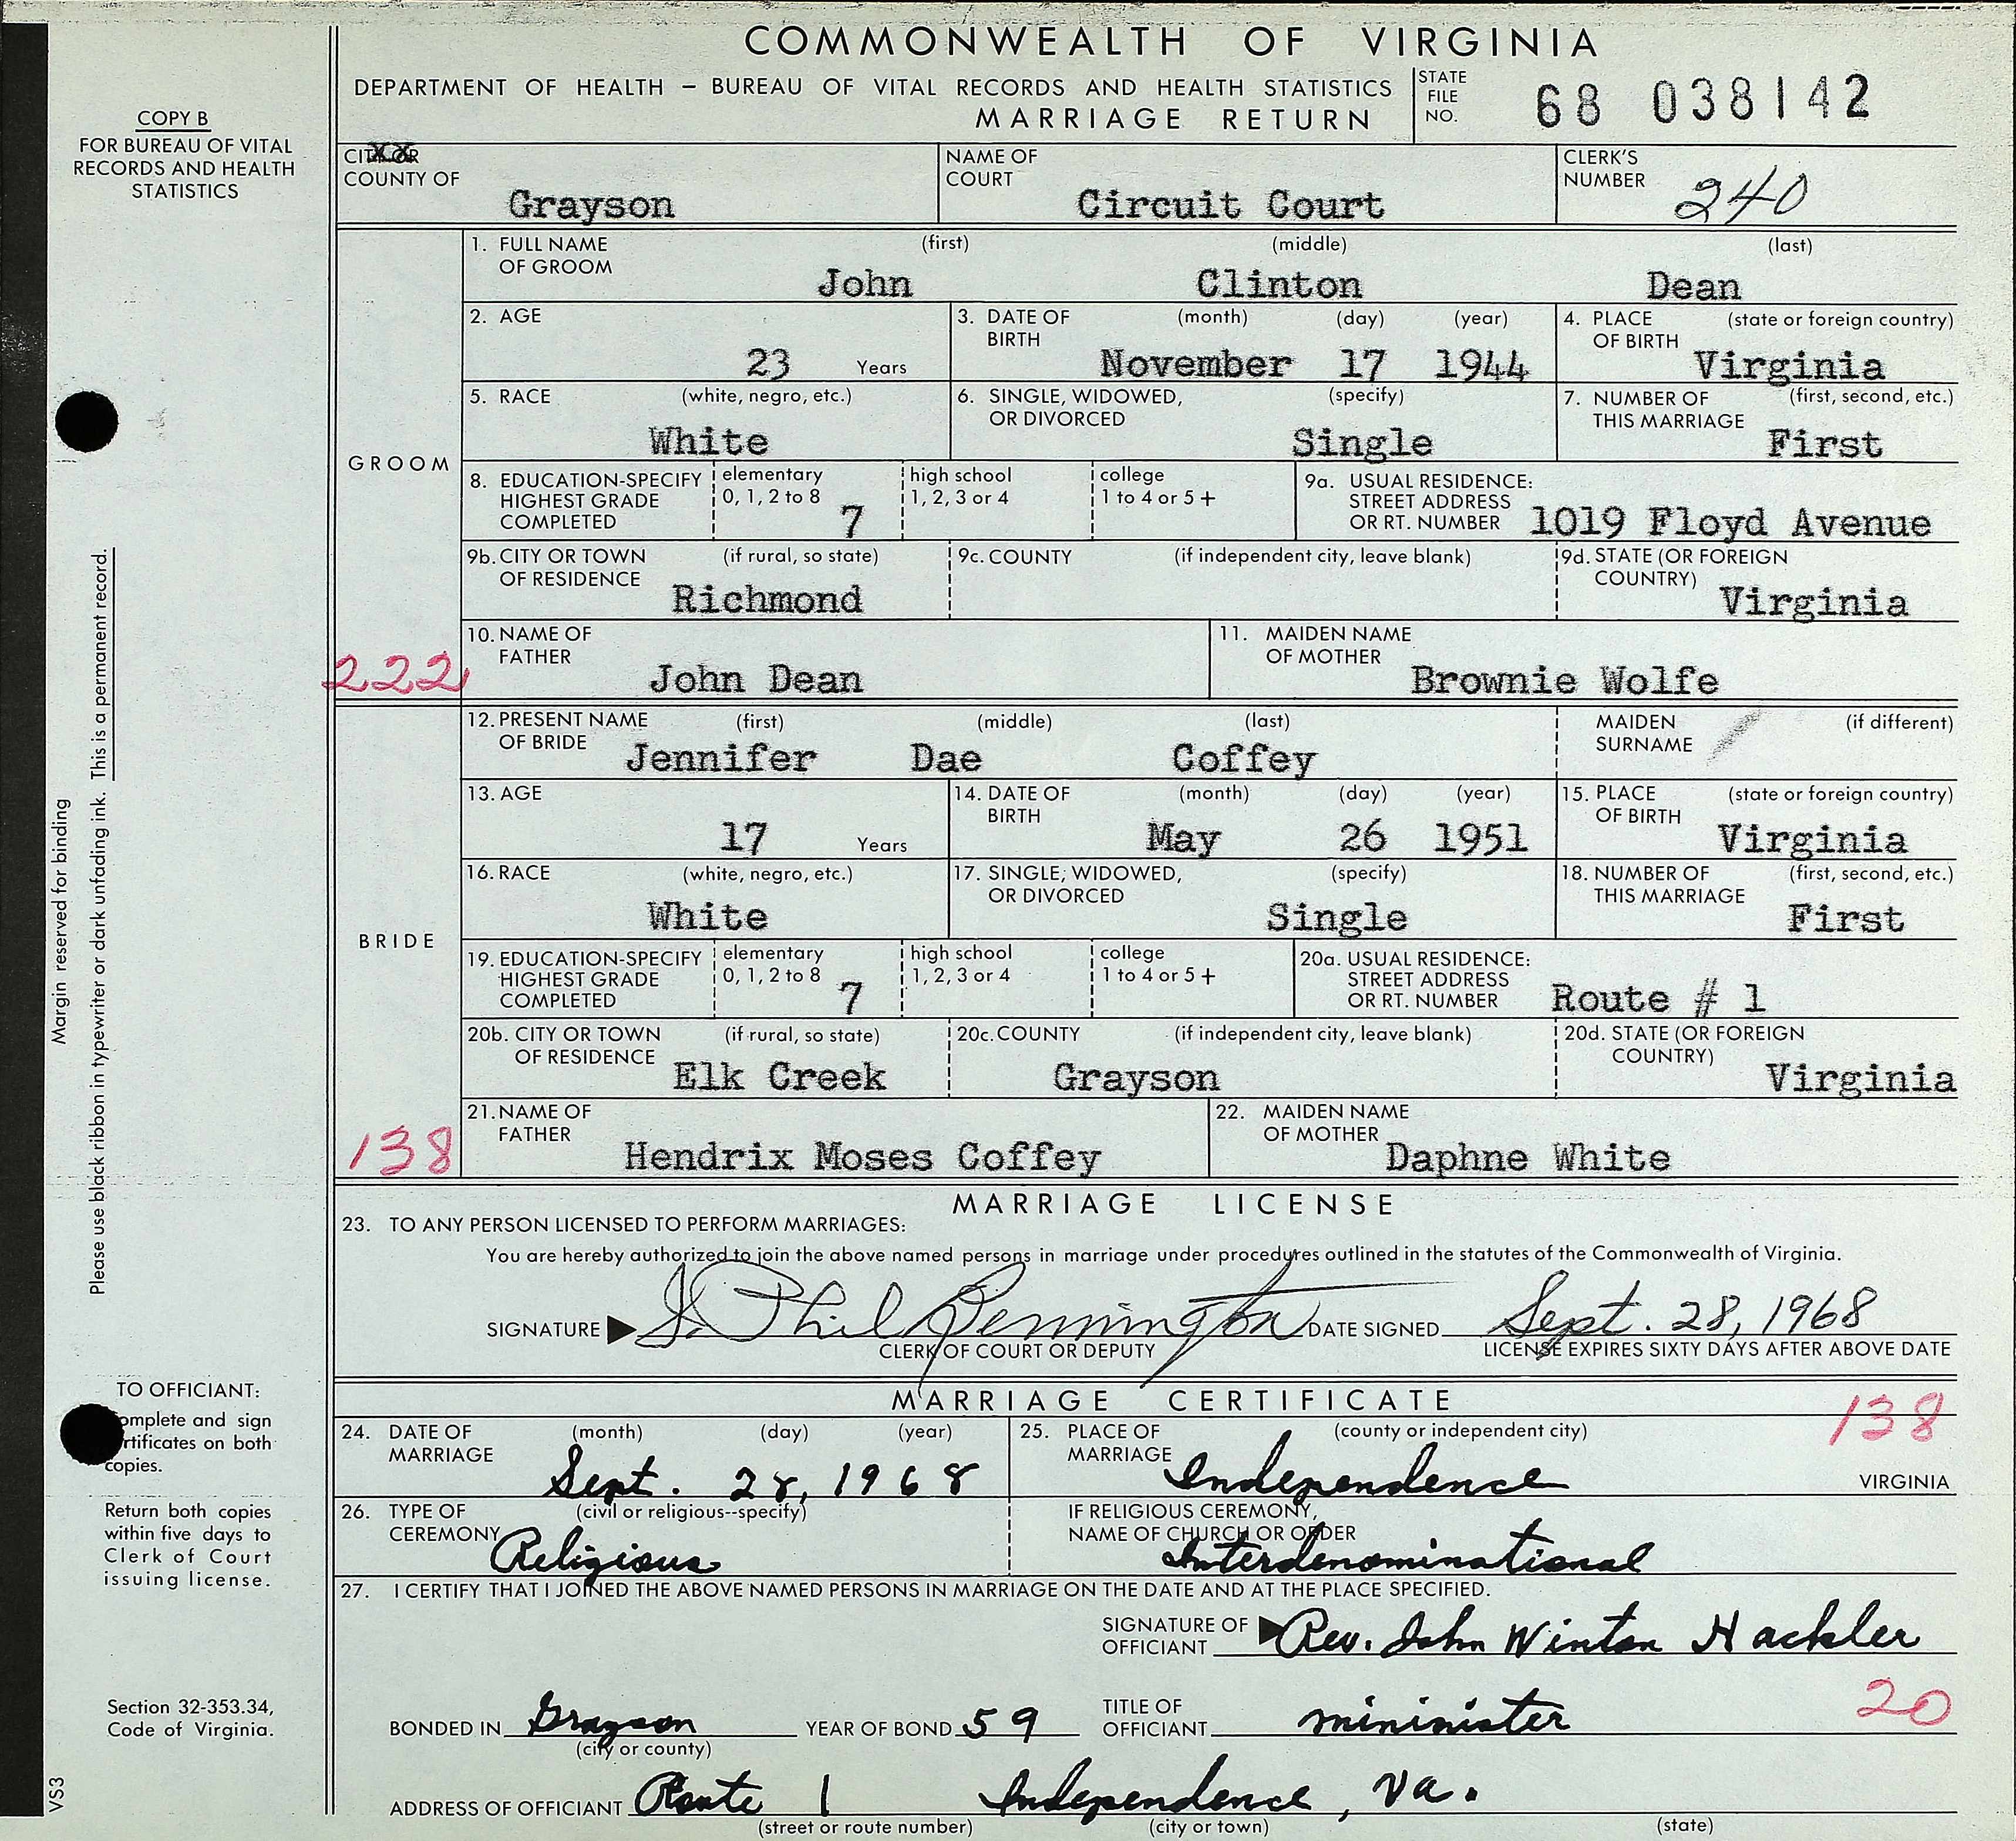 COMMONWEALTH OF VIRGINIA
DEPARTMENT OF HEALTH – BUREAU OF VITAL RECORDS AND HEALTH STATISTICS
MARRIAGE RETURN
STATE FILE NO. 68 038142
COPY B
FOR BUREAU OF VITAL
RECORDS AND HEALTH
STATISTICS
CITY OR COUNTY OF Grayson
NAME OF COURT Circuit Court
CLERK'S NUMBER 240
GROOM
1. FULL NAME OF GROOM (first) John (middle) Clinton (last) Dean
2. AGE 23 Years
3. DATE OF BIRTH (month) (day) (year) November 17 1944
4. PLACE OF BIRTH (state or foreign country) Virginia
5. RACE (white, negro, etc.) White
6. SINGLE, WIDOWED, OR DIVORCED (specify) Single
7. NUMBER OF THIS MARRIAGE (first, second, etc.) First
8. EDUCATION-SPECIFY HIGHEST GRADE COMPLETED elementary 0, 1, 2 to 8 7 high school 1, 2, 3 or 4 college 1 to 4 or 5+
9a. USUAL RESIDENCE: STREET ADDRESS OR RT. NUMBER 1019 Floyd Avenue
9b. CITY OR TOWN OF RESIDENCE (if rural, so state) Richmond
9c. COUNTY (if independent city, leave blank)
9d. STATE (OR FOREIGN COUNTRY) Virginia
10. NAME OF FATHER John Dean
11. MAIDEN NAME OF MOTHER Brownie Wolfe
222
BRIDE
12. PRESENT NAME OF BRIDE (first) Jennifer (middle) Dae (last) Coffey
MAIDEN SURNAME (if different)
13. AGE 17 Years
14. DATE OF BIRTH (month) (day) (year) May 26 1951
15. PLACE OF BIRTH (state or foreign country) Virginia
16. RACE (white, negro, etc.) White
17. SINGLE, WIDOWED, OR DIVORCED (specify) Single
18. NUMBER OF THIS MARRIAGE (first, second, etc.) First
19. EDUCATION-SPECIFY HIGHEST GRADE COMPLETED elementary 0, 1, 2 to 8 7 high school 1, 2, 3 or 4 college 1 to 4 or 5+
20a. USUAL RESIDENCE: STREET ADDRESS OR RT. NUMBER Route # 1
20b. CITY OR TOWN OF RESIDENCE (if rural, so state) Elk Creek
20c. COUNTY (if independent city, leave blank) Grayson
20d. STATE (OR FOREIGN COUNTRY) Virginia
21. NAME OF FATHER Hendrix Moses Coffey
22. MAIDEN NAME OF MOTHER Daphne White
138
MARRIAGE LICENSE
23. TO ANY PERSON LICENSED TO PERFORM MARRIAGES:
You are hereby authorized to join the above named persons in marriage under procedures outlined in the statutes of the Commonwealth of Virginia.
SIGNATURE Phil Pennington DATE SIGNED Sept. 28, 1968
CLERK OF COURT OR DEPUTY
LICENSE EXPIRES SIXTY DAYS AFTER ABOVE DATE
MARRIAGE CERTIFICATE
138
24. DATE OF MARRIAGE (month) (day) (year) Sept. 28, 1968
25. PLACE OF MARRIAGE (county or independent city) Independence VIRGINIA
26. TYPE OF CEREMONY (civil or religious--specify) Religious
IF RELIGIOUS CEREMONY, NAME OF CHURCH OR ORDER Interdenominational
27. I CERTIFY THAT I JOINED THE ABOVE NAMED PERSONS IN MARRIAGE ON THE DATE AND AT THE PLACE SPECIFIED.
SIGNATURE OF OFFICIANT Rev. John Winton Hackler
BONDED IN Grayson (city or county) YEAR OF BOND 59
TITLE OF OFFICIANT mininister
20
ADDRESS OF OFFICIANT Route 1 Independence, Va.
(street or route number) (city or town) (state)
Margin reserved for binding
Please use black ribbon in typewriter or dark unfading ink. This is a permanent record.
TO OFFICIANT:
omplete and sign
rtificates on both
copies.
Return both copies
within five days to
Clerk of Court
issuing license.
Section 32-353.34,
Code of Virginia.
VS3